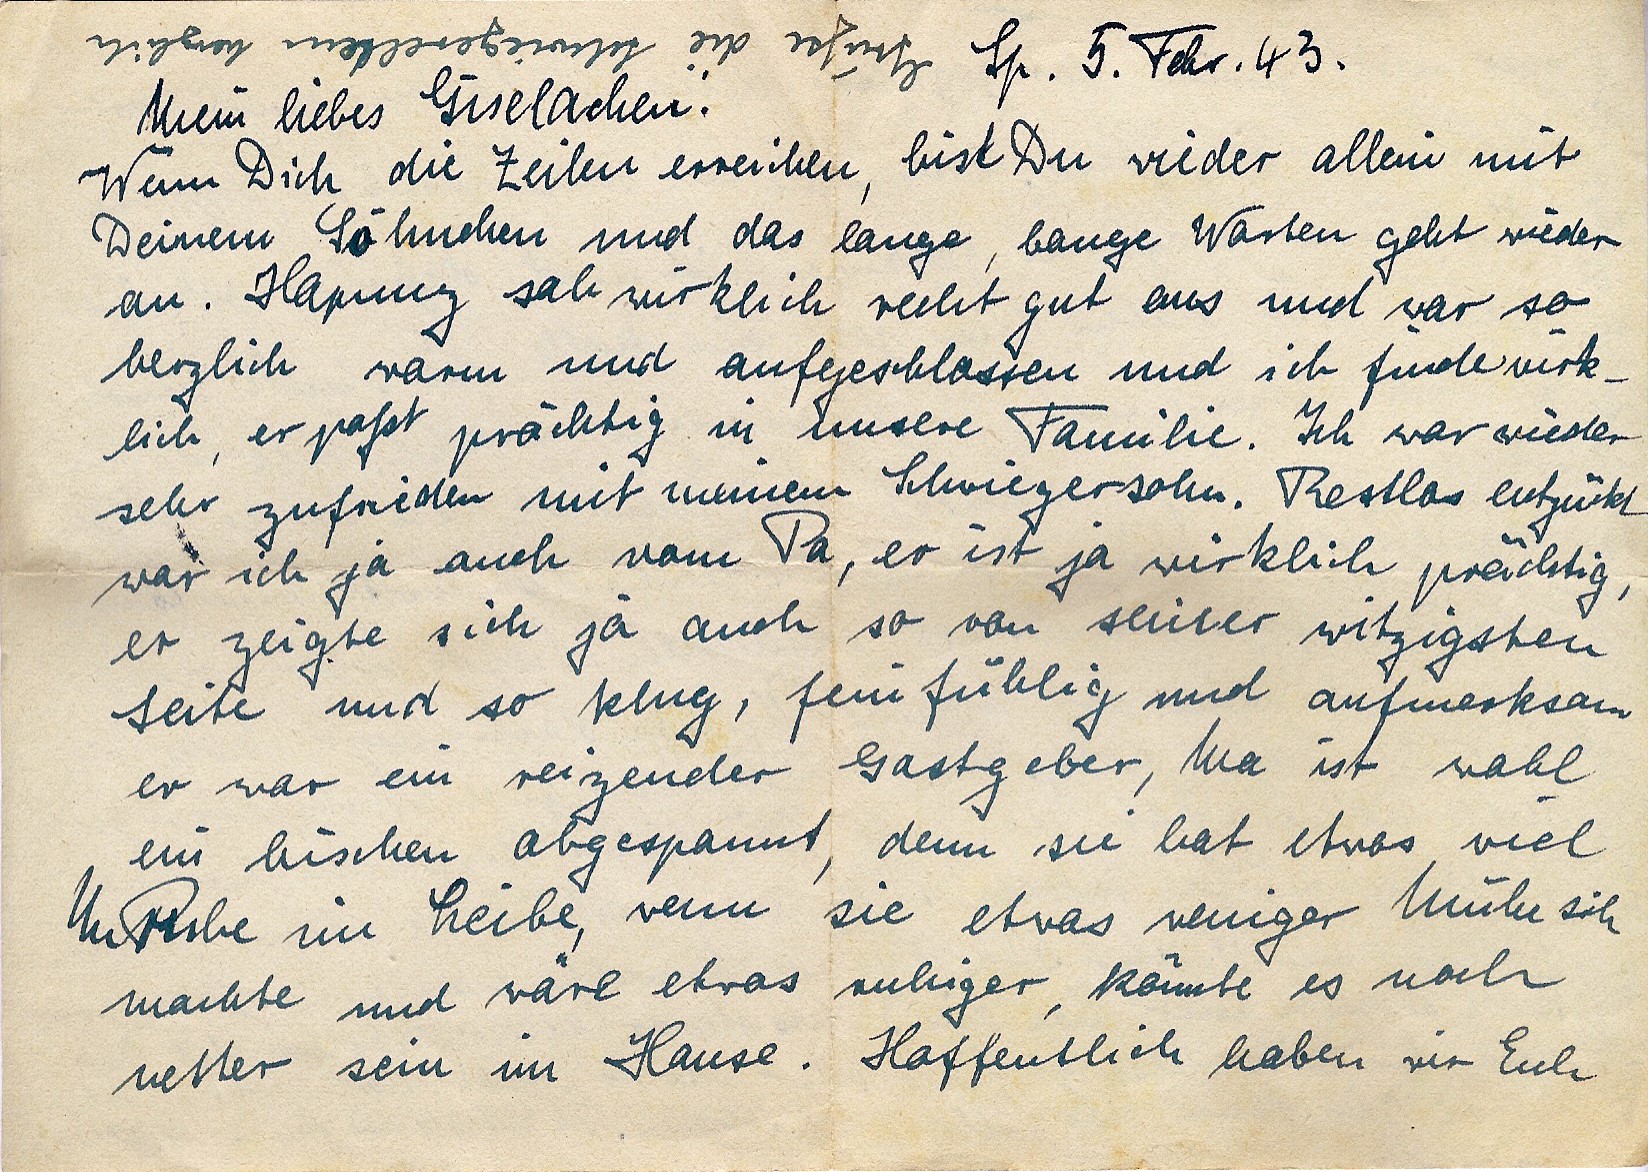 Grüße die Schwiegereltern herzlich
Sp. 5. Febr. 43.
Mein liebes Giselachen!
Wenn Dich die Zeilen erreichen, bist Du wieder allein mit
Deinem Söhnchen und das lange, bange Warten geht wieder
an. sah wirklich recht gut aus und war so
herzlich warm und aufgeschlossen und ich finde wirk-
lich, er paßt prächtig in unsere Familie. Ich war wieder
sehr zufrieden mit meinem Schwiegersohn. Restlos entzückt
war ich ja auch vom Pa, er ist ja wirklich prächtig,
er zeigte sich ja auch so von seiner witzigsten
Seite und so klug, feinfühlig und aufmerksam
er war ein reizender Gastgeber, Ma ist wohl
ein bischen abgespannt, denn sie hat etwas viel
UnRuhe im Leibe, wenn sie etwas weniger Mühe sich
machte und wäre etwas ruhiger, könnte es noch
netter sein im Hause. Hoffentlich haben wir Euch